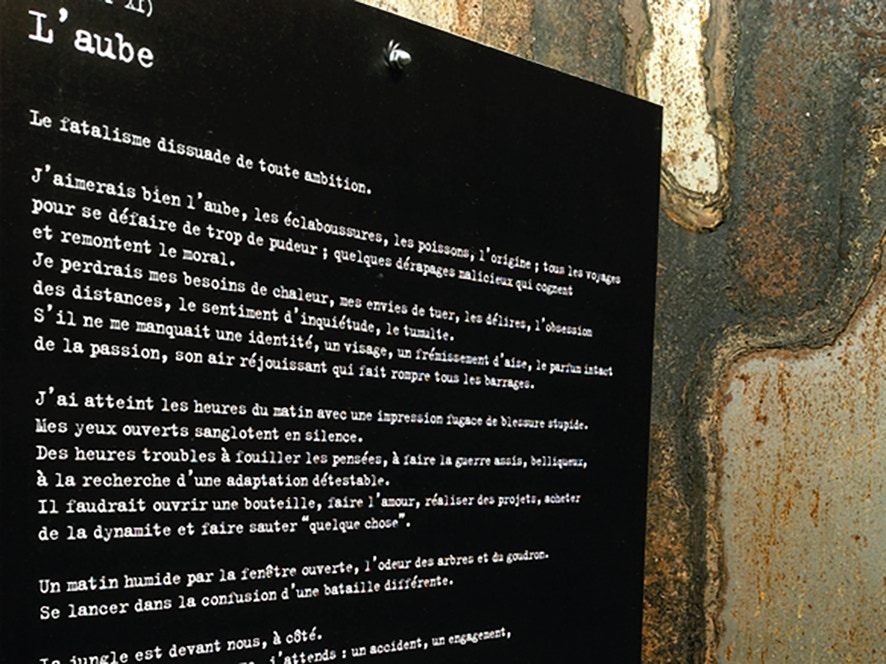 XI)
L'aube
Le fatalisme dissuade de toute ambition.
J'aimerais bien l'aube, les éclaboussures, les poissons, l'origine ; tous les voyages
pour se défaire de trop de pudeur ; quelques dérapages malicieux qui cognent
et remontent le moral.
Je perdrais mes besoins de chaleur, mes envies de tuer, les délires, l'obsession
des distances, le sentiment d'inquiétude, le tumulte.
S'il ne me manquait une identité, un visage, un frémissement d'aise, le parfum intact
de la passion, son air réjouissant qui fait rompre tous les barrages.
J'ai atteint les heures du matin avec une impression fugace de blessure stupide.
Mes yeux ouverts sanglotent en silence.
Des heures troubles à fouiller les pensées, à faire la guerre assis, belliqueux,
à la recherche d'une adaptation détestable.
Il faudrait ouvrir une bouteille, faire l'amour, réaliser des projets, acheter
de la dynamite et faire sauter "quelque chose".
Un matin humide par la fenêtre ouverte, l'odeur des arbres et du goudron.
Se lancer dans la confusion d'une bataille différente.
La jungle est devant nous, à côté.
j'attends : un accident, un engagement,